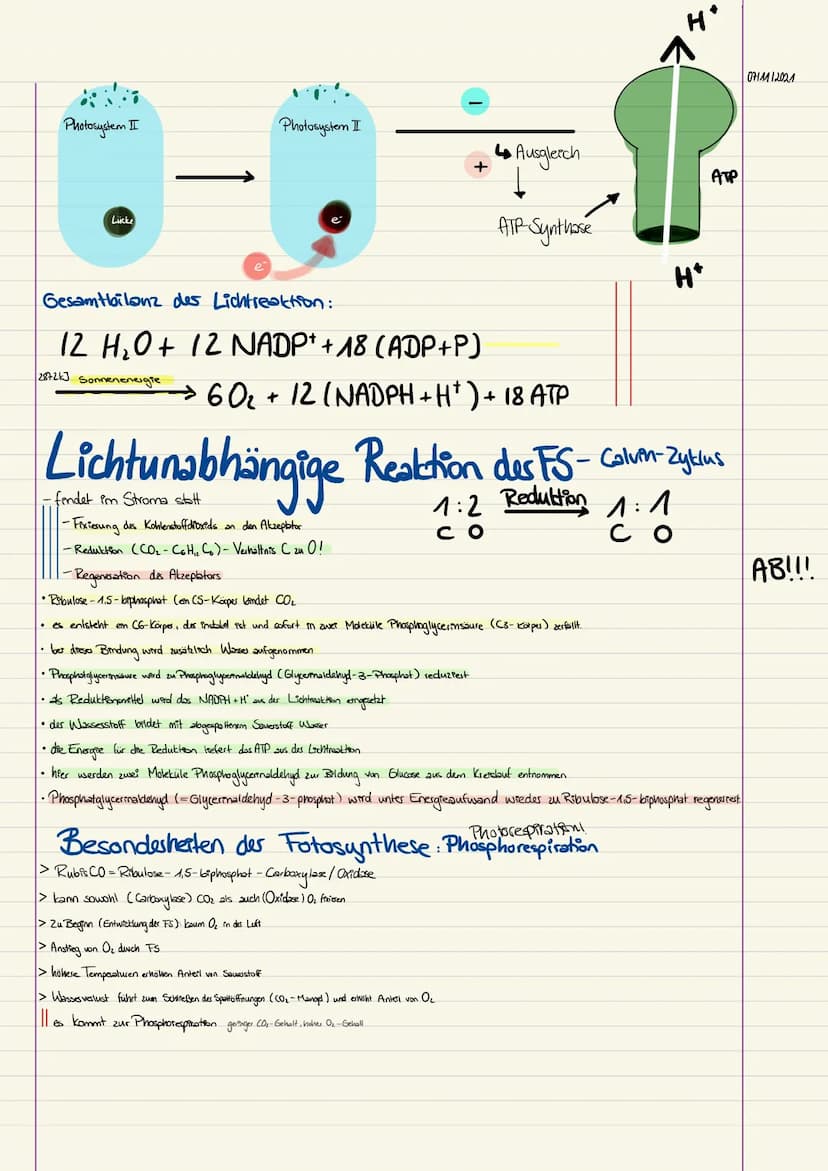 H⁺
07/11/2021
Photosystem II
Photosystem II
−
+
↳ Ausgleich
ATP-Synthase
ATP
Lücke
e⁻
e⁻
H⁺
Gesamtbilanz der Lichtreaktion:
12 H₂O + 12 NADP⁺ + 18 (ADP+P)
2872kJ Sonnenenergie
→ 6 O₂ + 12 (NADPH + H⁺) + 18 ATP
Lichtunabhängige Reaktion des FS - Calvin-Zyklus
- findet im Stroma statt
1:2 Reduktion 1:1
C O C O
- Fixierung des Kohlenstoffdioxids an den Akzeptor
- Reduktion (CO₂ - - Verhältnis C zu O!
- Regeneration des Akzeptors
AB!!!
• Ribulose-1,5-biphosphat (ein C5-Körper bindet CO₂
• es entsteht ein C6-Körper, der instabil ist und sofort in zwei Moleküle Phosphoglycerinsäure (C3-Körper) zerfällt.
• bei dieser Bindung wird zusätzlich Wasser aufgenommen
• Phosphatglycerinsäure wird zu Phosphoglycerinaldehyd (Glycerinaldehyd-3-Phosphat) reduziert
• als Reduktionsmittel wird das NADPH+H⁺ aus der Lichtreaktion eingesetzt
• der Wasserstoff bildet mit abgespaltenem Sauerstoff Wasser
• die Energie für die Reduktion liefert das ATP aus der Lichtreaktion
• hier werden zwei Moleküle Phosphoglycerinaldehyd zur Bildung von Glucose aus dem Kreislauf entnommen
• Phosphatglycerinaldehyd (= Glycerinaldehyd-3-phosphat) wird unter Energieaufwand wieder zu Ribulose-1,5-biphosphat regeneriert.
Photorespiration!
Besonderheiten der Fotosynthese: Phosphorespiration
> RubisCO = Ribulose-1,5-biphosphat-Carboxylase/Oxidase
> kann sowohl (Carboxylase) CO₂ als auch (Oxidase) O₂ fixieren
> Zu Beginn (Entwicklung der FS): kaum O₂ in der Luft
> Anstieg von O₂ durch FS
> höhere Temperaturen erhöhen Anteil von Sauerstoff
> Wasserverlust führt zum Schließen der Spaltöffnungen (CO₂-Mangel) und erhöht Anteil von O₂
es kommt zur Phosphorespiration geringer CO₂-Gehalt, hoher O₂-Gehalt